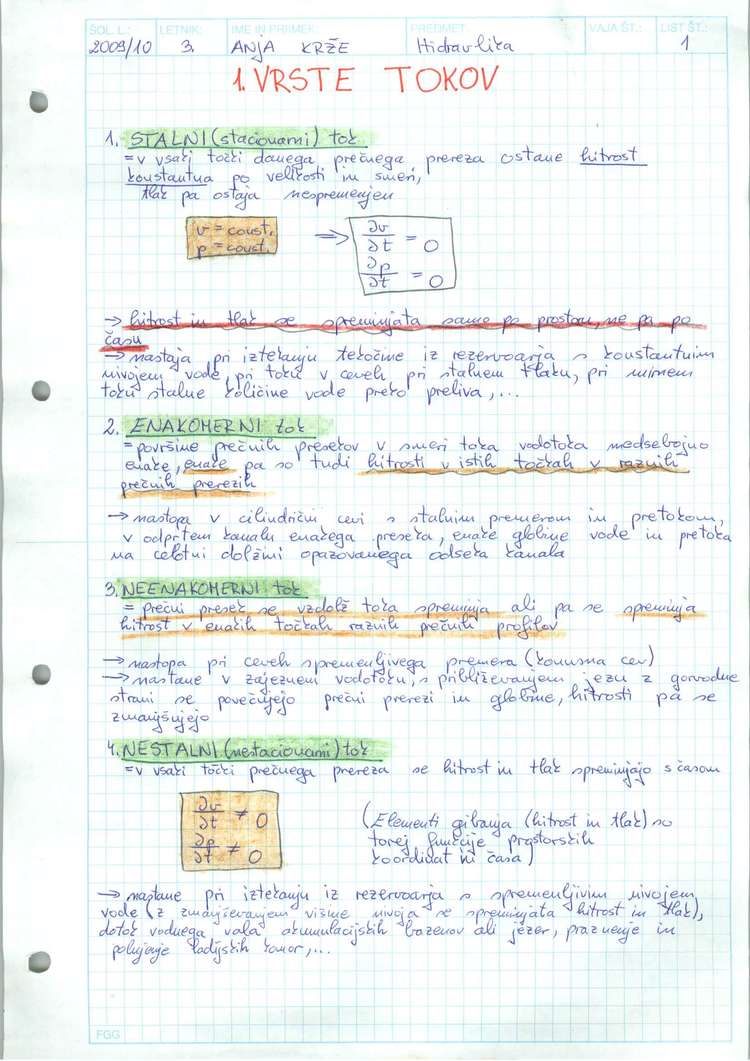 ŠOL. L.: LETNIK: IME IN PRIIMEK: PREDMET: VAJA ŠT.: LIST ŠT.:
2009/10 3. ANJA KRŽE Hidravlika 1
1. VRSTE TOKOV
1. STALNI (stacionarni) tok
= v vsaki točki danega prečnega prereza ostane hitrost
konstantna po velikosti in smeri,
tlak pa ostaja nespremenjen
v = const. ⇒ ∂v/∂t = 0
p = const. ∂p/∂t = 0
→ hitrost in tlak se spreminjata samo po prostoru, ne pa po
času
→ nastaja pri iztekanju tekočine iz rezervoarja s konstantnim
nivojem vode, pri toku v ceveh pri stalnem tlaku, pri mirnem
toku stalne količine vode preko preliva,...
2. ENAKOMERNI tok
= površine prečnih presekov v smeri toka vodotoka medsebojno
enake, enake pa so tudi hitrosti v istih točkah v raznih
prečnih prerezih
→ nastopa v cilindrični cevi s stalnim premerom in pretokom,
v odprtem kanalu enakega preseka, enake globine vode in pretoka
na celotni dolžini opazovanega odseka kanala
3. NEENAKOMERNI tok
= prečni presek se vzdolž toka spreminja ali pa se spreminja
hitrost v enakih točkah raznih prečnih profilov
→ nastopa pri ceveh spremenljivega premera (konusna cev)
→ nastane v zajezenem vodotoku, s približevanjem jezu z gorvodne
strani se povečujejo prečni prerezi in globine, hitrosti pa se
zmanjšujejo
4. NESTALNI (nestacionarni) tok
= v vsaki točki prečnega prereza se hitrost in tlak spreminjajo s časom
∂v/∂t ≠ 0
∂p/∂t ≠ 0
(Elementi gibanja (hitrost in tlak) so
torej funkcije prostorskih
koordinat in časa)
→ nastane pri iztekanju iz rezervoarja s spremenljivim nivojem
vode (z zmanjševanjem višine nivoja se spreminjata hitrost in tlak),
dotok vodnega vala akumulacijskih bazenov ali jezer, praznenje in
polnjenje ladijskih komor,...
FGG